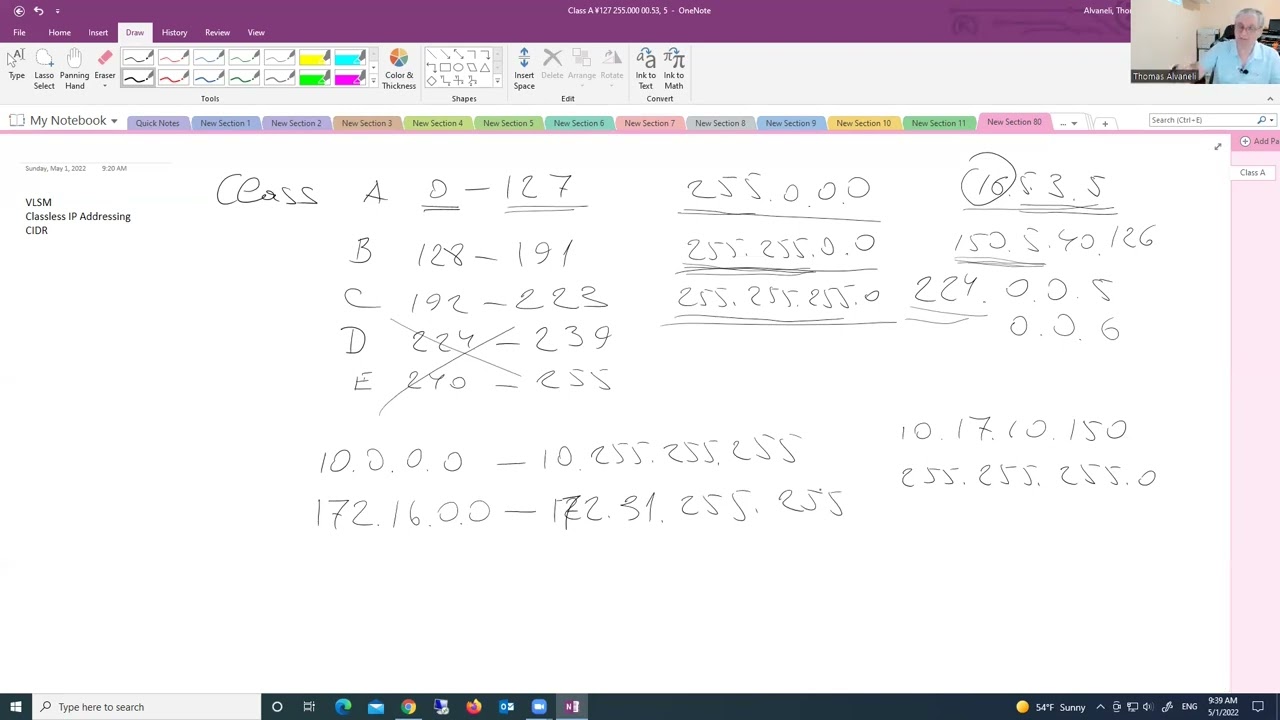 Class A ¥127 255.000 00.53, 5 - OneNote
Alvaneli, Tho
Thomas Alvaneli
File Home Insert Draw History Review View
Type
Lasso Select
Panning Hand
Eraser
Color & Thickness
Insert Space
Delete
Arrange
Rotate
Ink to Text
Ink to Math
Tools
Shapes
Edit
Convert
My Notebook
Quick Notes
New Section 1
New Section 2
New Section 3
New Section 4
New Section 5
New Section 6
New Section 7
New Section 8
New Section 9
New Section 10
New Section 11
New Section 80
...
Search (Ctrl+E)
Add Pa
Class A
Sunday, May 1, 2022 9:20 AM
VLSM
Classless IP Addressing
CIDR
Class A 0 - 127 255.0.0.0 16.53.5
B 128 - 191 255.255.0.0 150.5.40.126
C 192 - 223 255.255.255.0 224.0.0.5
0.0.6
D 224 - 239
E 240 - 255
10.0.0.0 - 10.255.255.255
10.17.10.150
255.255.255.0
172.16.0.0 - 172.31.255.255
Type here to search
54°F Sunny
9:39 AM
5/1/2022